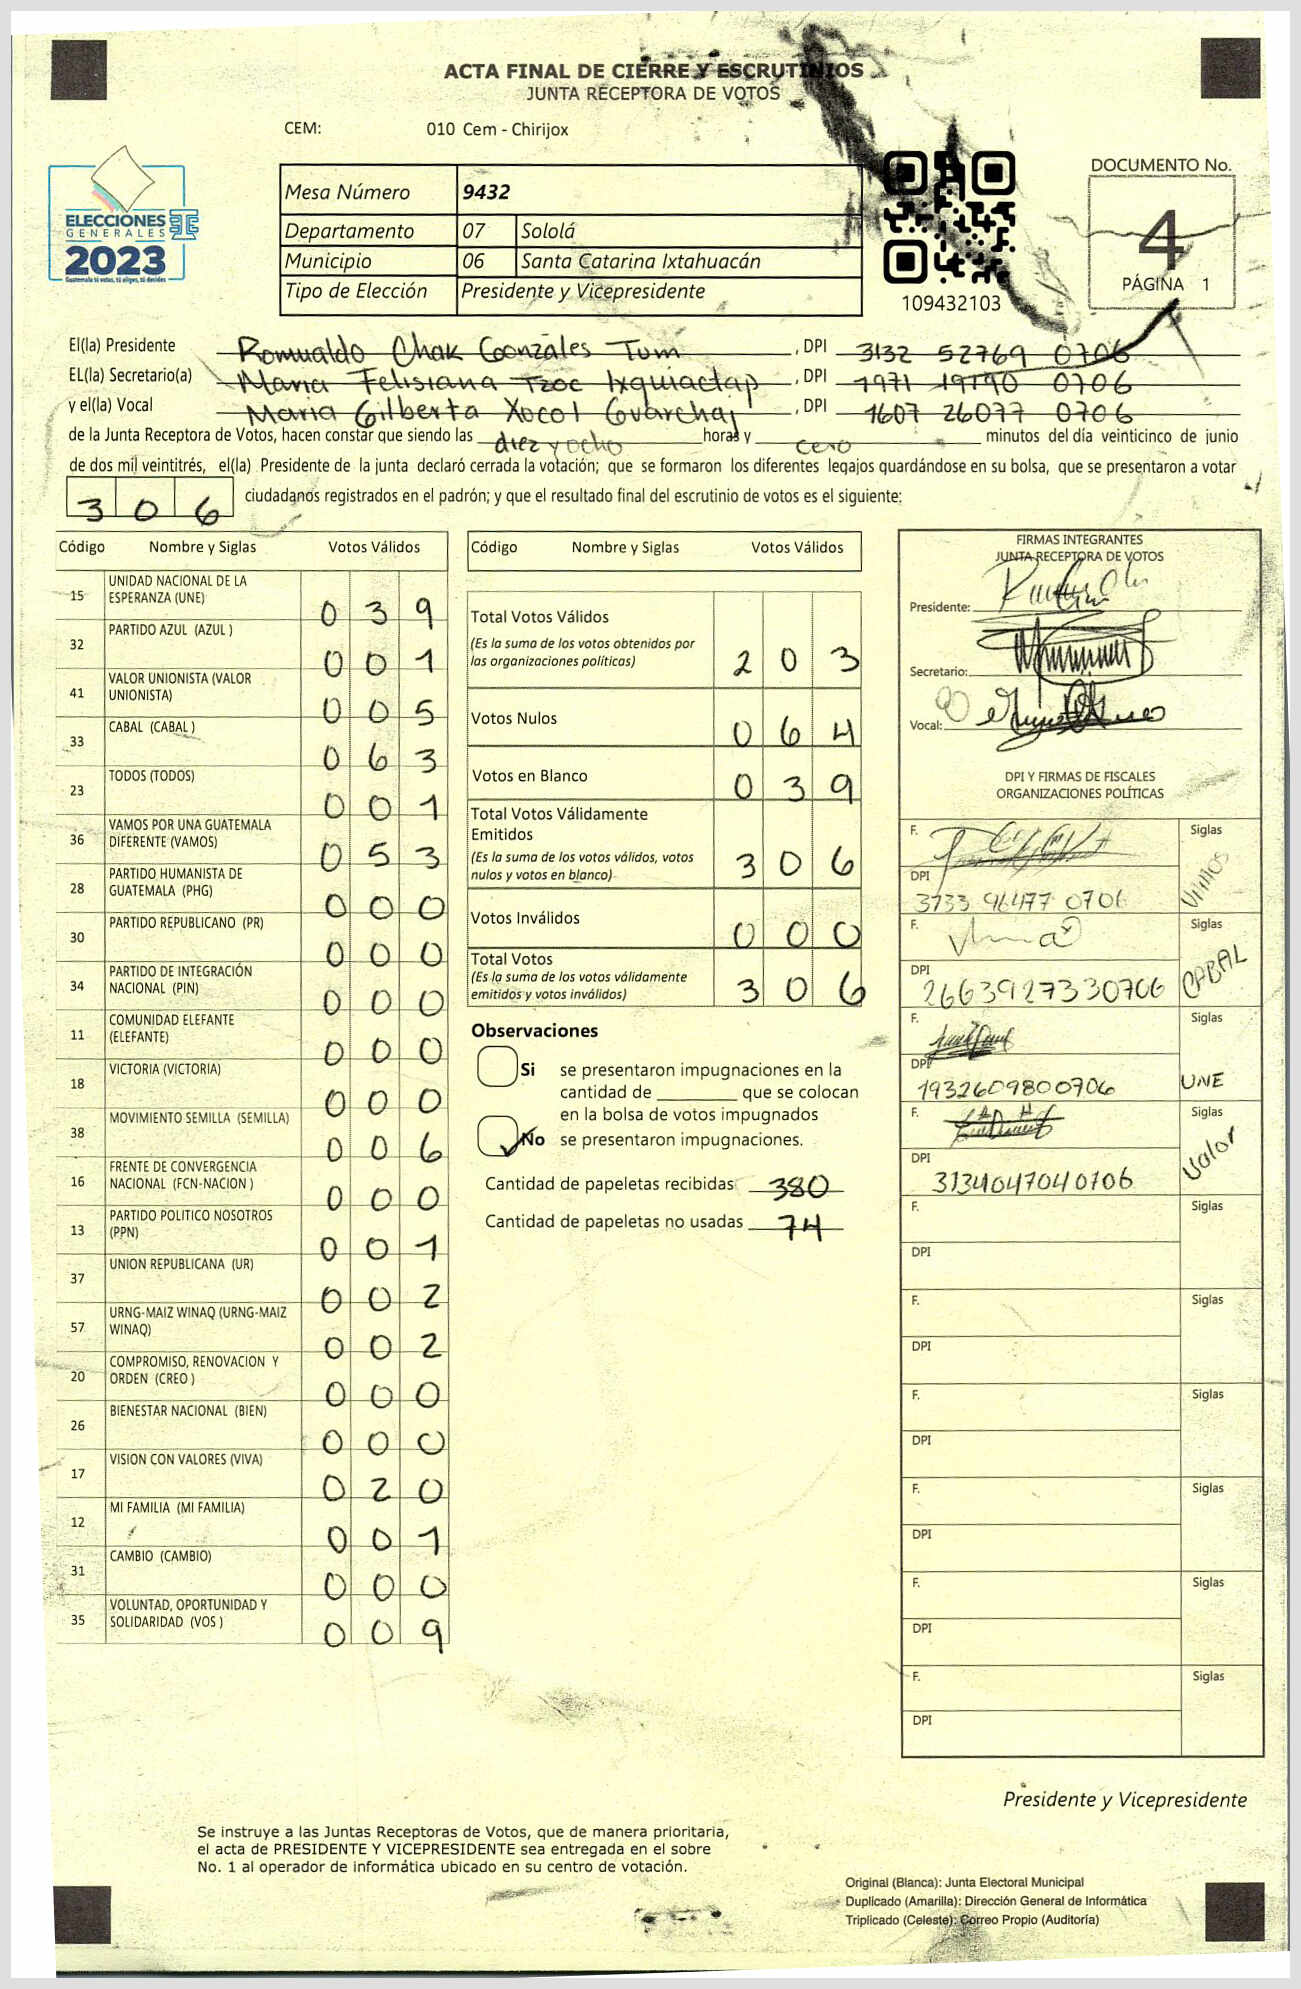 ACTA FINAL DE CIERRE Y ESCRUTINIOS
JUNTA RECEPTORA DE VOTOS
CEM: 010 Cem - Chirijox
ELECCIONES
GENERALES
2023
Guatemala tú votas, tú eliges, tú decides
Mesa Número 9432
Departamento 07 Sololá
Municipio 06 Santa Catarina Ixtahuacán
Tipo de Elección Presidente y Vicepresidente
109432103
DOCUMENTO No.
4
PÁGINA 1
El(la) Presidente Romualdo Chak Gonzáles Tum, DPI 3132 52769 0706
EL(la) Secretario(a) Maria Felisiana Tzoc Ixquiactap, DPI 1971 19190 0706
y el(la) Vocal Maria Gilberta Xocol Guarchaj, DPI 1607 26077 0706
de la Junta Receptora de Votos, hacen constar que siendo las diez y ocho horas y cero minutos del día veinticinco de junio
de dos mil veintitrés, el(la) Presidente de la junta declaró cerrada la votación; que se formaron los diferentes legajos guardándose en su bolsa, que se presentaron a votar
306 ciudadanos registrados en el padrón; y que el resultado final del escrutinio de votos es el siguiente:
Código Nombre y Siglas Votos Válidos
15 UNIDAD NACIONAL DE LA ESPERANZA (UNE) 0 3 9
32 PARTIDO AZUL (AZUL ) 0 0 1
41 VALOR UNIONISTA (VALOR UNIONISTA) 0 0 5
33 CABAL (CABAL ) 0 6 3
23 TODOS (TODOS) 0 0 1
36 VAMOS POR UNA GUATEMALA DIFERENTE (VAMOS) 0 5 3
28 PARTIDO HUMANISTA DE GUATEMALA (PHG) 0 0 0
30 PARTIDO REPUBLICANO (PR) 0 0 0
34 PARTIDO DE INTEGRACIÓN NACIONAL (PIN) 0 0 0
11 COMUNIDAD ELEFANTE (ELEFANTE) 0 0 0
18 VICTORIA (VICTORIA) 0 0 0
38 MOVIMIENTO SEMILLA (SEMILLA) 0 0 6
16 FRENTE DE CONVERGENCIA NACIONAL (FCN-NACION ) 0 0 0
13 PARTIDO POLITICO NOSOTROS (PPN) 0 0 1
37 UNION REPUBLICANA (UR) 0 0 2
57 URNG-MAIZ WINAQ (URNG-MAIZ WINAQ) 0 0 2
20 COMPROMISO, RENOVACION Y ORDEN (CREO ) 0 0 0
26 BIENESTAR NACIONAL (BIEN) 0 0 0
17 VISION CON VALORES (VIVA) 0 2 0
12 MI FAMILIA (MI FAMILIA) 0 0 1
31 CAMBIO (CAMBIO) 0 0 0
35 VOLUNTAD, OPORTUNIDAD Y SOLIDARIDAD (VOS ) 0 0 9
Código Nombre y Siglas Votos Válidos
Total Votos Válidos
(Es la suma de los votos obtenidos por
las organizaciones políticas) 2 0 3
Votos Nulos 0 6 4
Votos en Blanco 0 3 9
Total Votos Válidamente
Emitidos
(Es la suma de los votos válidos, votos
nulos y votos en blanco) 3 0 6
Votos Inválidos 0 0 0
Total Votos
(Es la suma de los votos válidamente
emitidos y votos inválidos) 3 0 6
Observaciones
Si se presentaron impugnaciones en la
cantidad de ________ que se colocan
en la bolsa de votos impugnados
No se presentaron impugnaciones.
Cantidad de papeletas recibidas 380
Cantidad de papeletas no usadas 74
FIRMAS INTEGRANTES
JUNTA RECEPTORA DE VOTOS
Presidente:
Secretario:
Vocal:
DPI Y FIRMAS DE FISCALES
ORGANIZACIONES POLÍTICAS
F. Siglas
DPI Vamos
3733 96477 0706
F. Siglas
DPI CABAL
2663927330706
F. Siglas
DPI UNE
1932609800706
F. Siglas
DPI Valor
3134047040706
F. Siglas
DPI
F. Siglas
DPI
F. Siglas
DPI
F. Siglas
DPI
F. Siglas
DPI
F. Siglas
DPI
Presidente y Vicepresidente
Se instruye a las Juntas Receptoras de Votos, que de manera prioritaria,
el acta de PRESIDENTE Y VICEPRESIDENTE sea entregada en el sobre
No. 1 al operador de informática ubicado en su centro de votación.
Original (Blanca): Junta Electoral Municipal
Duplicado (Amarilla): Dirección General de Informática
Triplicado (Celeste): Correo Propio (Auditoría)